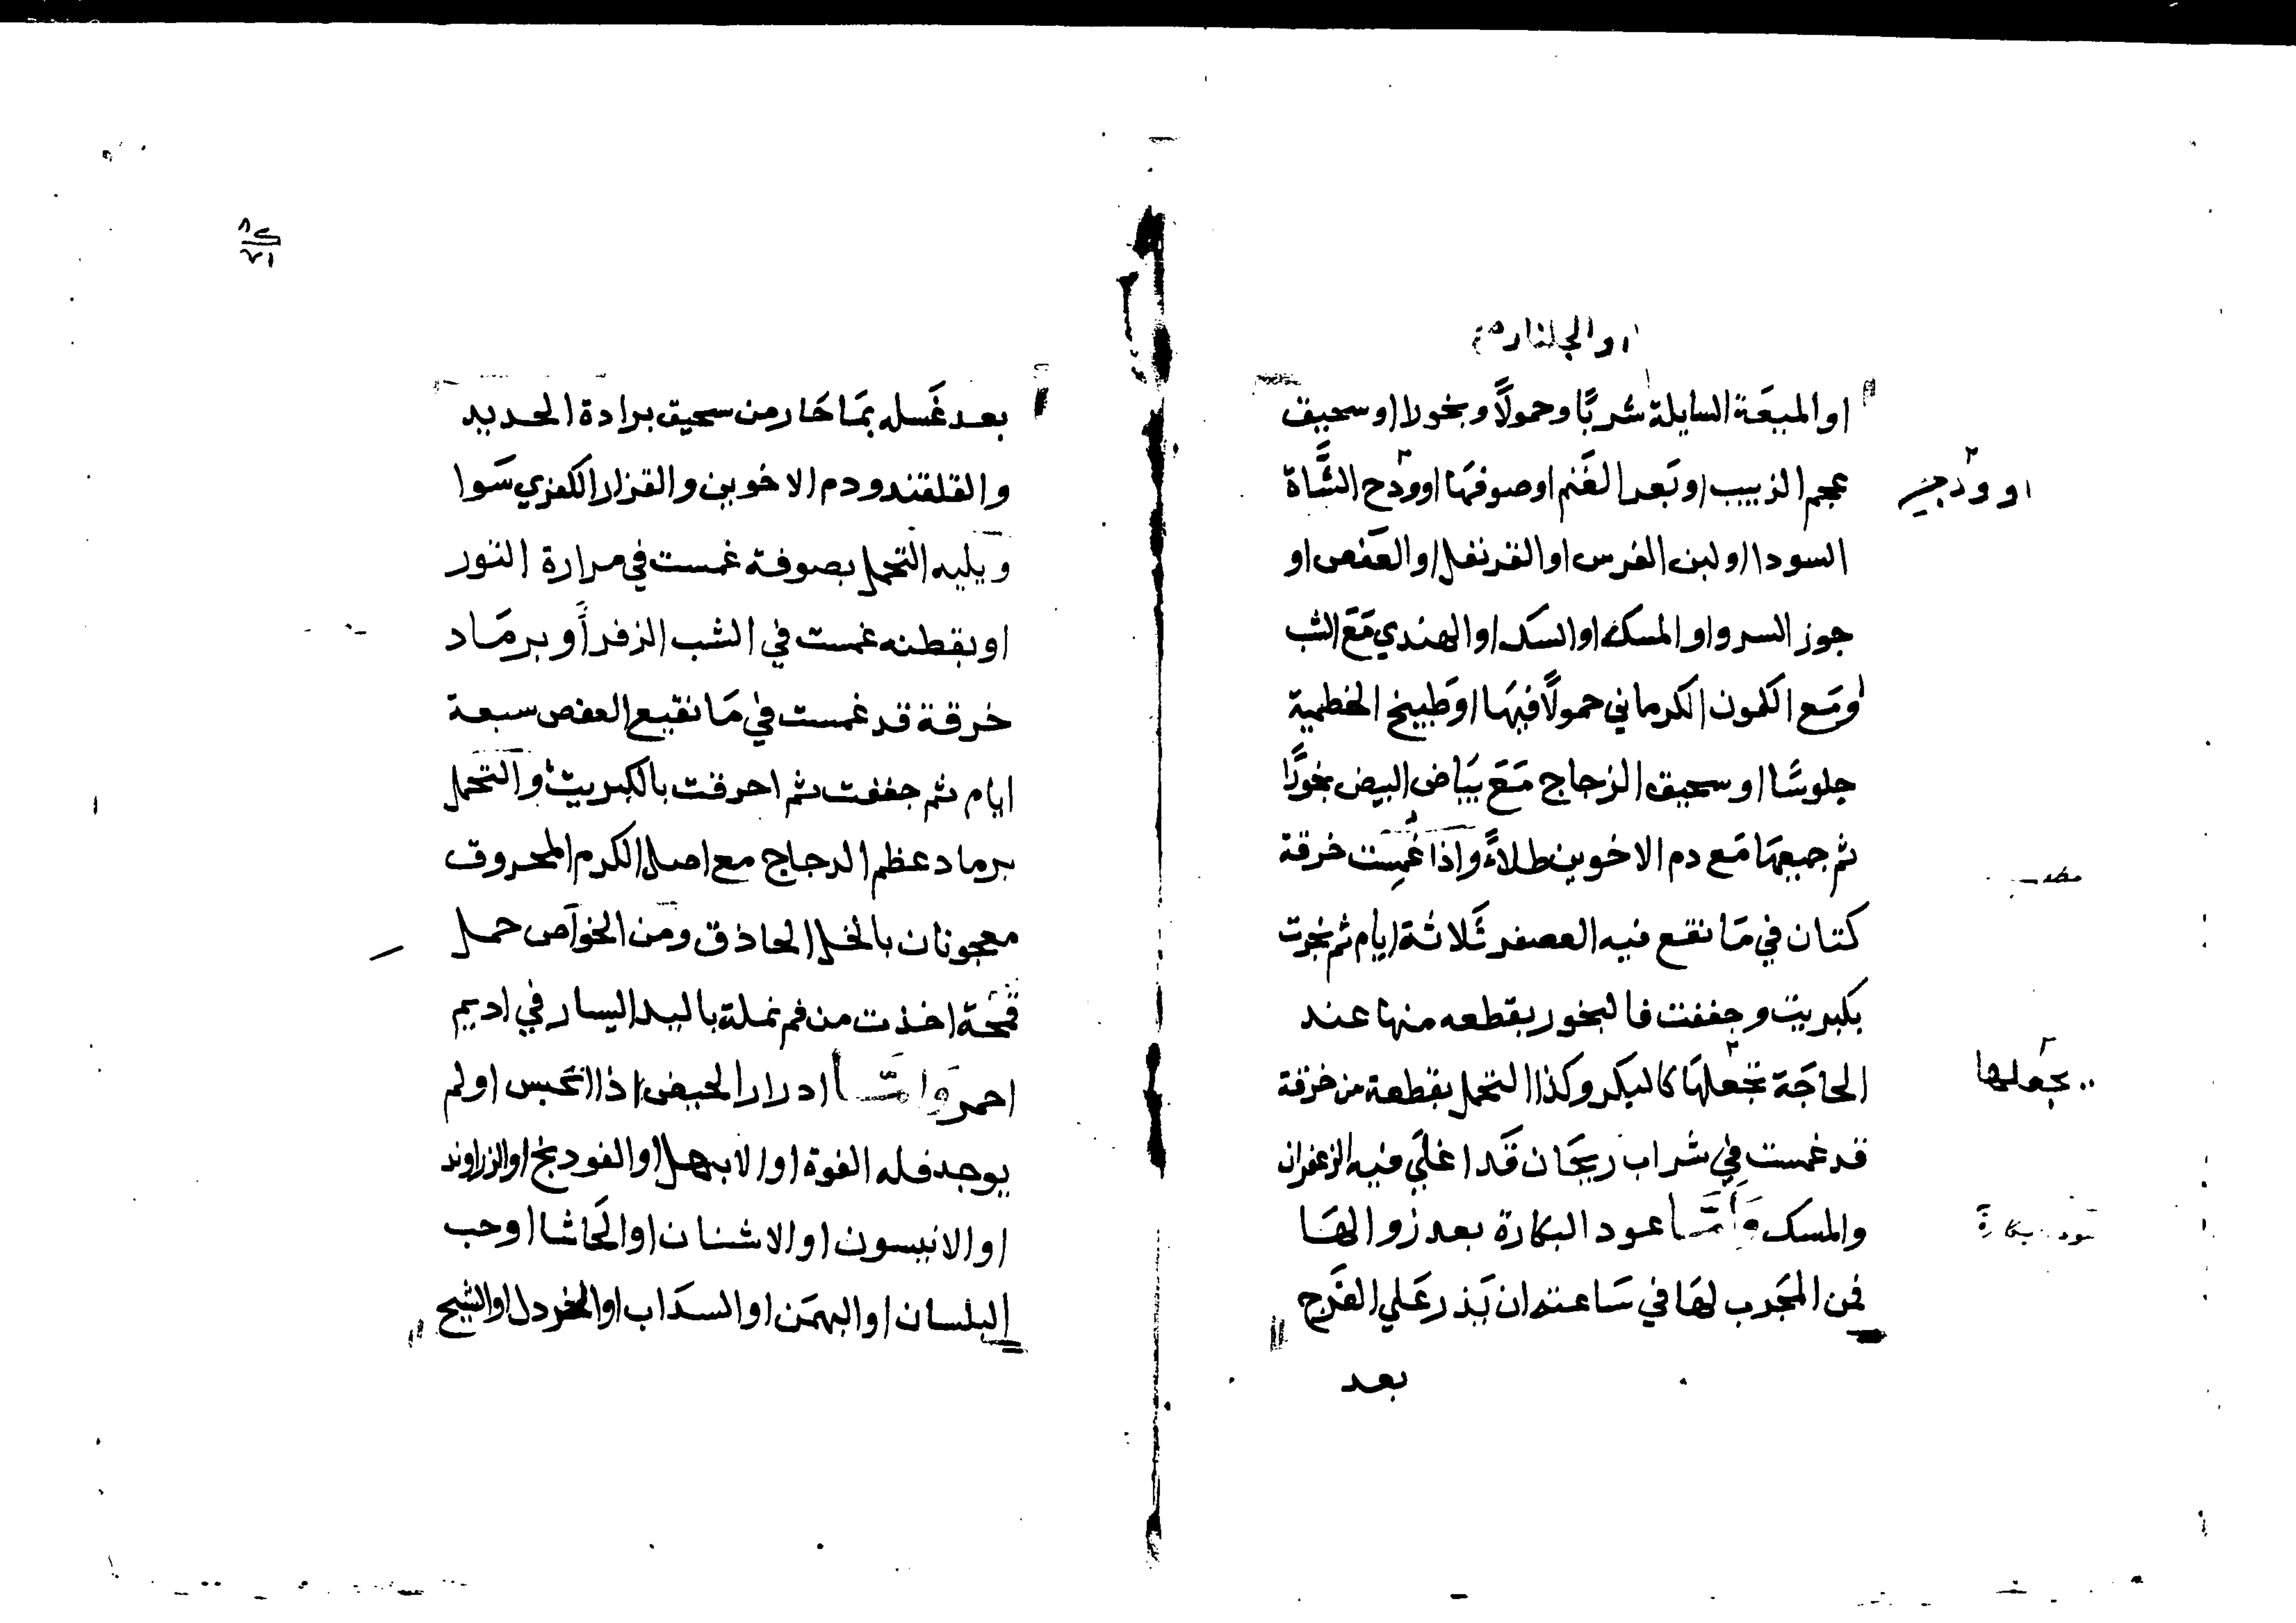 او الجلنار
او الميعَة السايلة شربًا وحمولًا وبخورا او سحيق
عجم الزبيب او بَعر الغَنم او صوفهَا او وَذح الشَّاة
السودا او لبن الفرس او القرنفل او العَفص او
جوز السرو او المسك او السك او الهندي مَعَ الشب
او مَع الكمون الكرماني حمولًا فيهَا او طَبيخ الخطمية
جلوسًا او سحيق الزجاج مَعَ بيَاض البيض بخورًا
ثم جميعهَا مَع دم الاخوين طلاءً واذا غُمِست خرقة
كتان في مَا نقع فيه العصفر ثَلاثة ايام ثم بخرت
بكبريت وجففت فالبخور بقطعه منها عند
الحاجَة تجعلهَا كالبكر وكذا التحمل بقطعة من خرقة
قد غمست في شراب ريحَان قَد اغلَي فيه الزعفران
والمسك وَامَّا عود البكارة بعد زوالهَا
فمن المجَرب لهَا في سَاعته ان يَذر عَلي الفَرج
بعد
او وذح
تجعلها
بعد غَسله بمَا حَار من سحيق برادة الحديد
والقلقند ودم الاخوين والقزاز الكفري سَوا
ويليه التحمل بصوفة غمست في مرارة الثور
او بقطنه غمست في الشب الزفر أو برمَاد
خرقة قد غمست في مَا نقيع العفص سبعة
ايام ثم جففت ثم احرقت بالكبريت والتحمل
برماد عظم الدجاج مع اصل الكرم المحروق
معجونان بالخل الحاذق ومن الخوَاص حمل
قمحَة اخذت من فم نملة باليد اليسار في اديم
احمر وَامَّا ادرار الحيض اذا انحَبس او لم
يوجد فله الفوة او الابهل او الفودنج او الزراوند
او الانيسون او الاشنان او الحَاشا او حب
البلسان او البهمَن او السدَاب او الخردل او الشيح